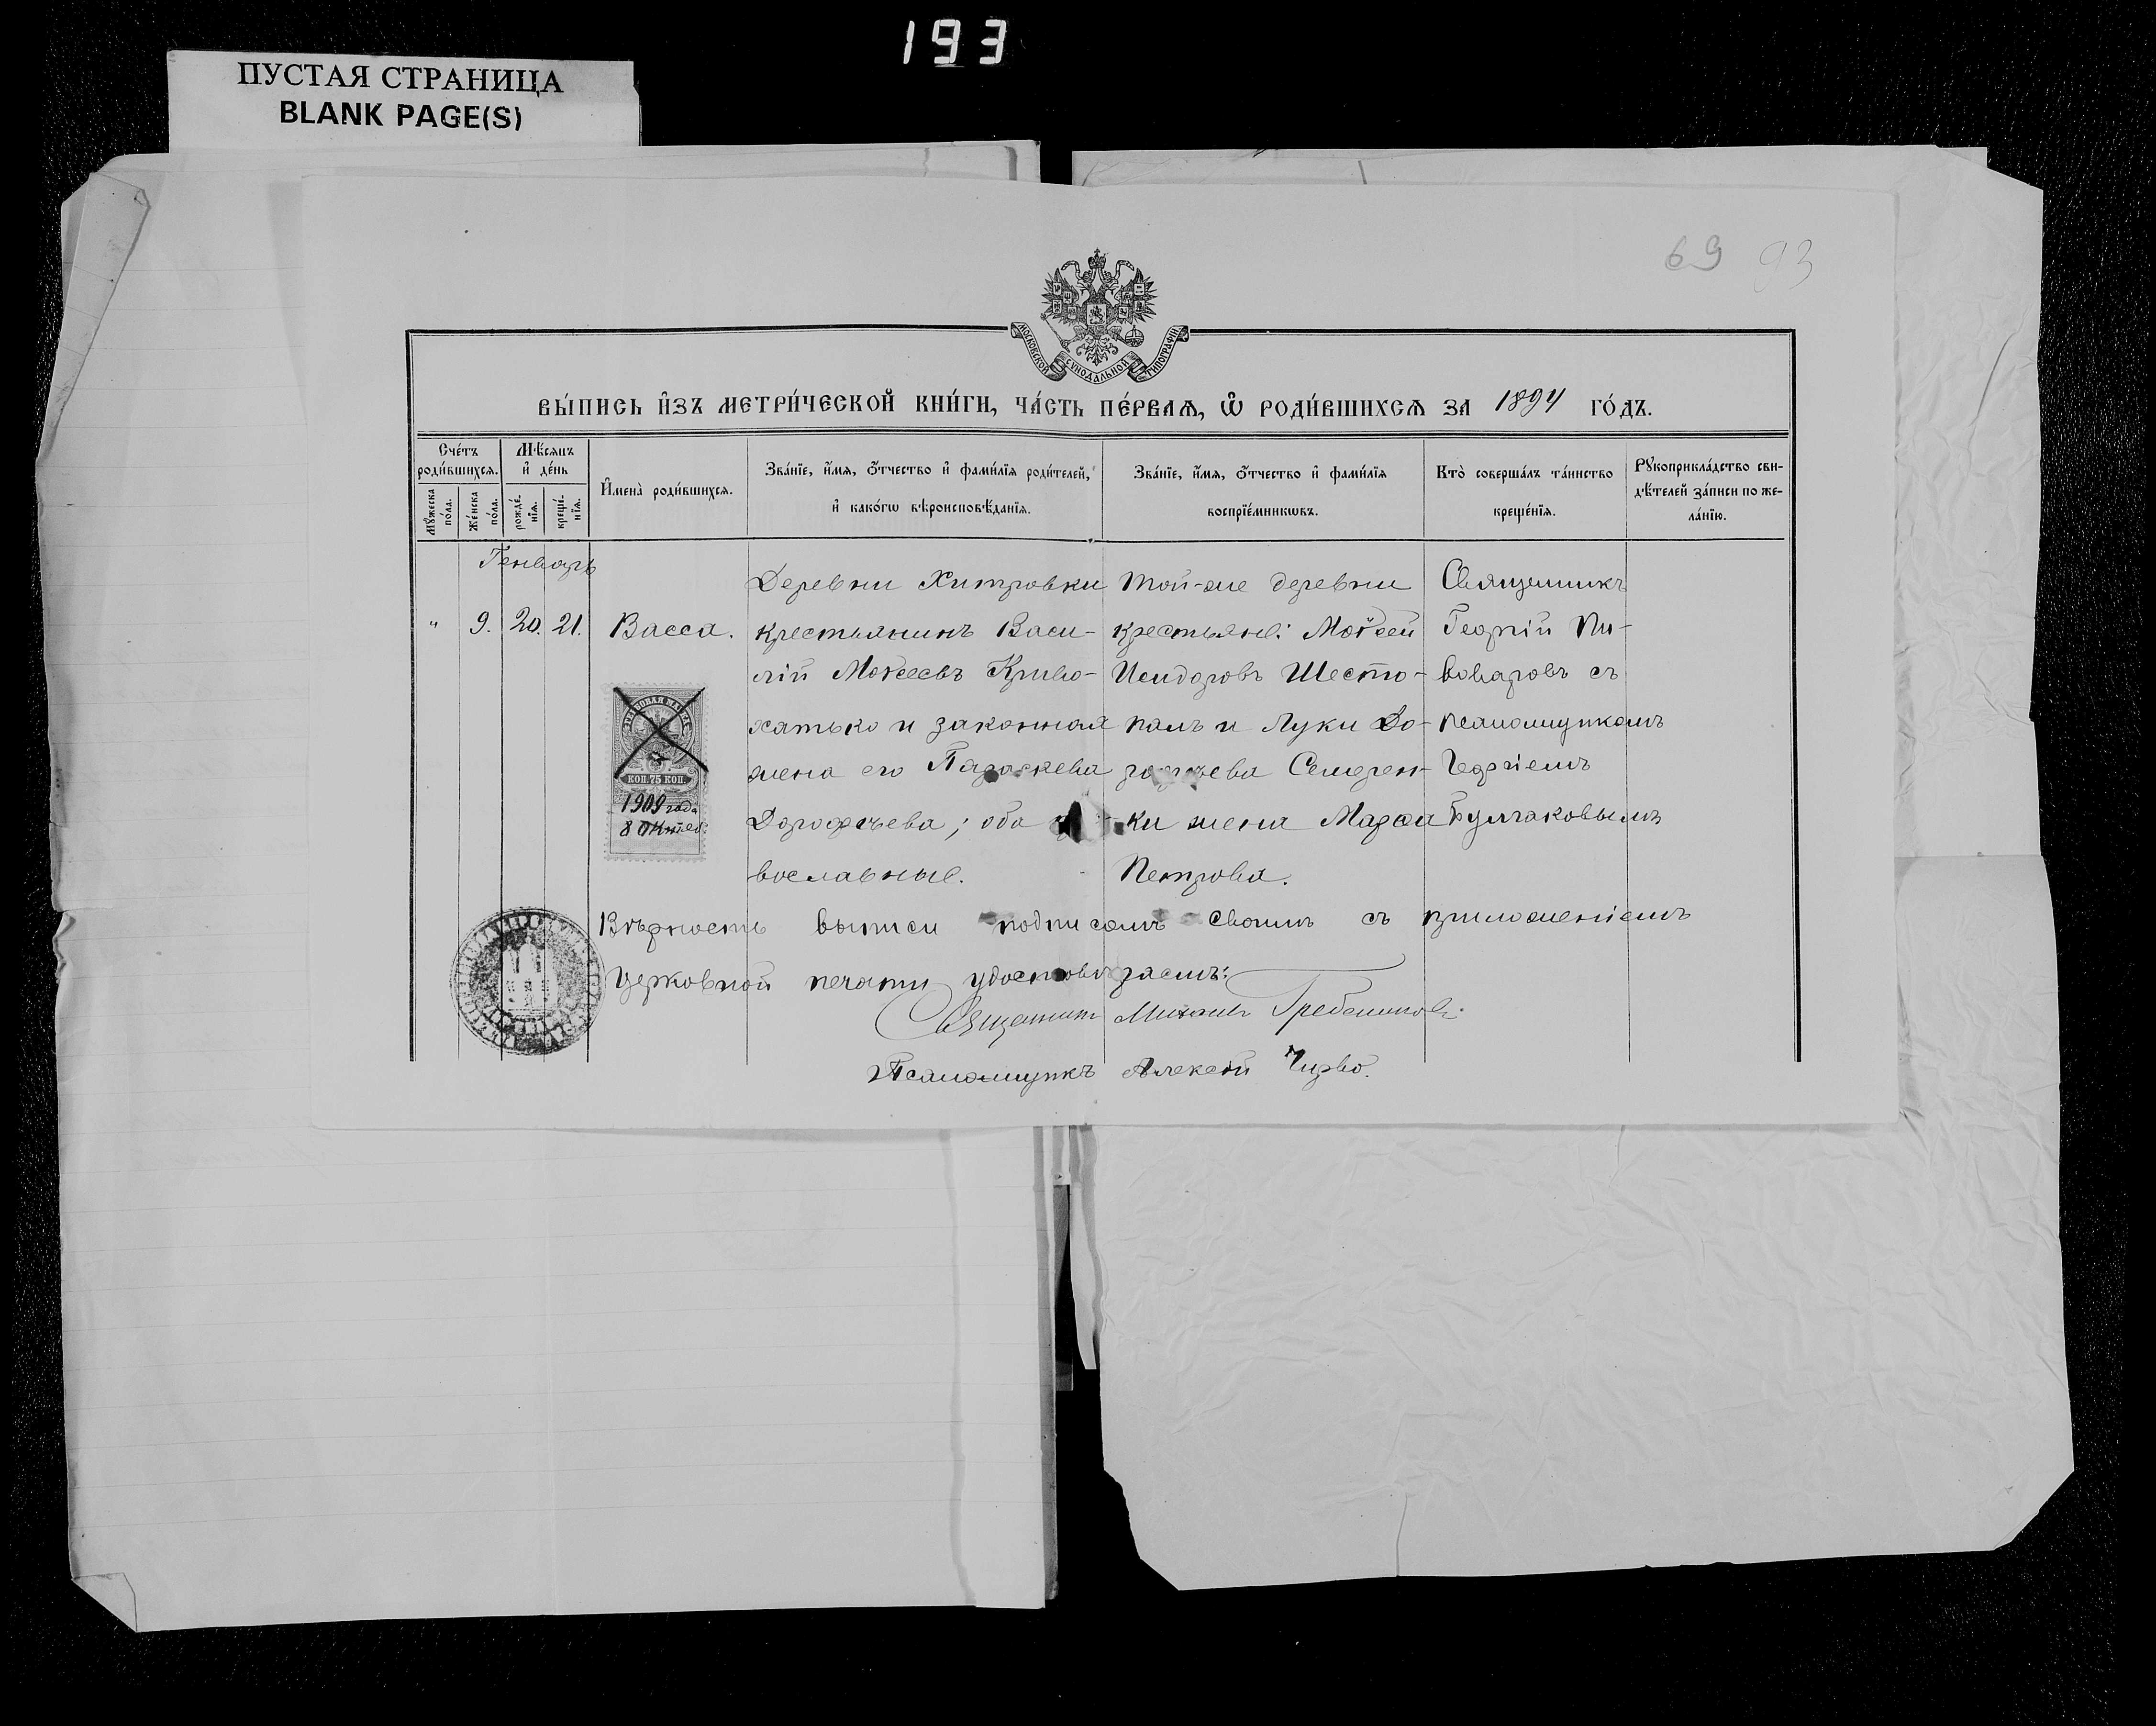 193
ПУСТАЯ СТРАНИЦА
BLANK PAGE(S)
69 93
МОСКОВСКОЙ СѴНОДАЛЬНОЙ ТИПОГРАФІИ
ВЫ́ПИСЬ И҆ЗЪ МЕТРИ́ЧЕСКОЙ КНИ́ГИ, ЧА́СТЬ ПЕ́РВАѦ, Ѡ҆ РОДИ́ВШИХСѦ ЗА 1894 ГО́ДЪ.
Сче́тъ роди́вшихсѧ.
Мꙋ́жеска по́ла.
Же́нска по́ла.
Мѣ́сѧцъ и҆ де́нь
рожде́нїѧ.
креще́нїѧ.
И҆мена̀ роди́вшихсѧ.
Зва́нїе, и҆́мѧ, ѻ҆́тчество и҆ фами́лїѧ роди́телей,
и҆ како́гѡ вѣроисповѣ́данїѧ.
Зва́нїе, и҆́мѧ, ѻ҆́тчество и҆ фами́лїѧ
воспрїе́мникѡвъ.
Кто̀ соверша́лъ та́инство
креще́нїѧ.
Рꙋкоприкла́дство сви-
дѣ́телей за́писи по же-
ла́нїю.
Генварь
" 9. 20. 21. Васса.
Деревни Хитровки
крестьянинъ Васи-
лій Моѵсеевъ Криво-
хатько и законная
жена его Параскева
Дорофѣева; оба
вославные.
Той-же деревни
крестьяне: Моѵсей
Исидоровъ Шесто-
палъ и Луки До-
Семерен-
ки жена Марѳа
Петрова.
Священникъ
Георгій Пи-
воваровъ съ
псаломщикомъ
Георгіемъ
Булгаковымъ
КОП. 75 КОП.
1909 года
8 Октяб:
Вѣрность выписи подписомъ своимъ съ приложеніемъ
церковной печати удостовѣряемъ:
Священникъ Михаилъ Гребенниковъ.
Псаломщикъ Алексѣй Чирво.